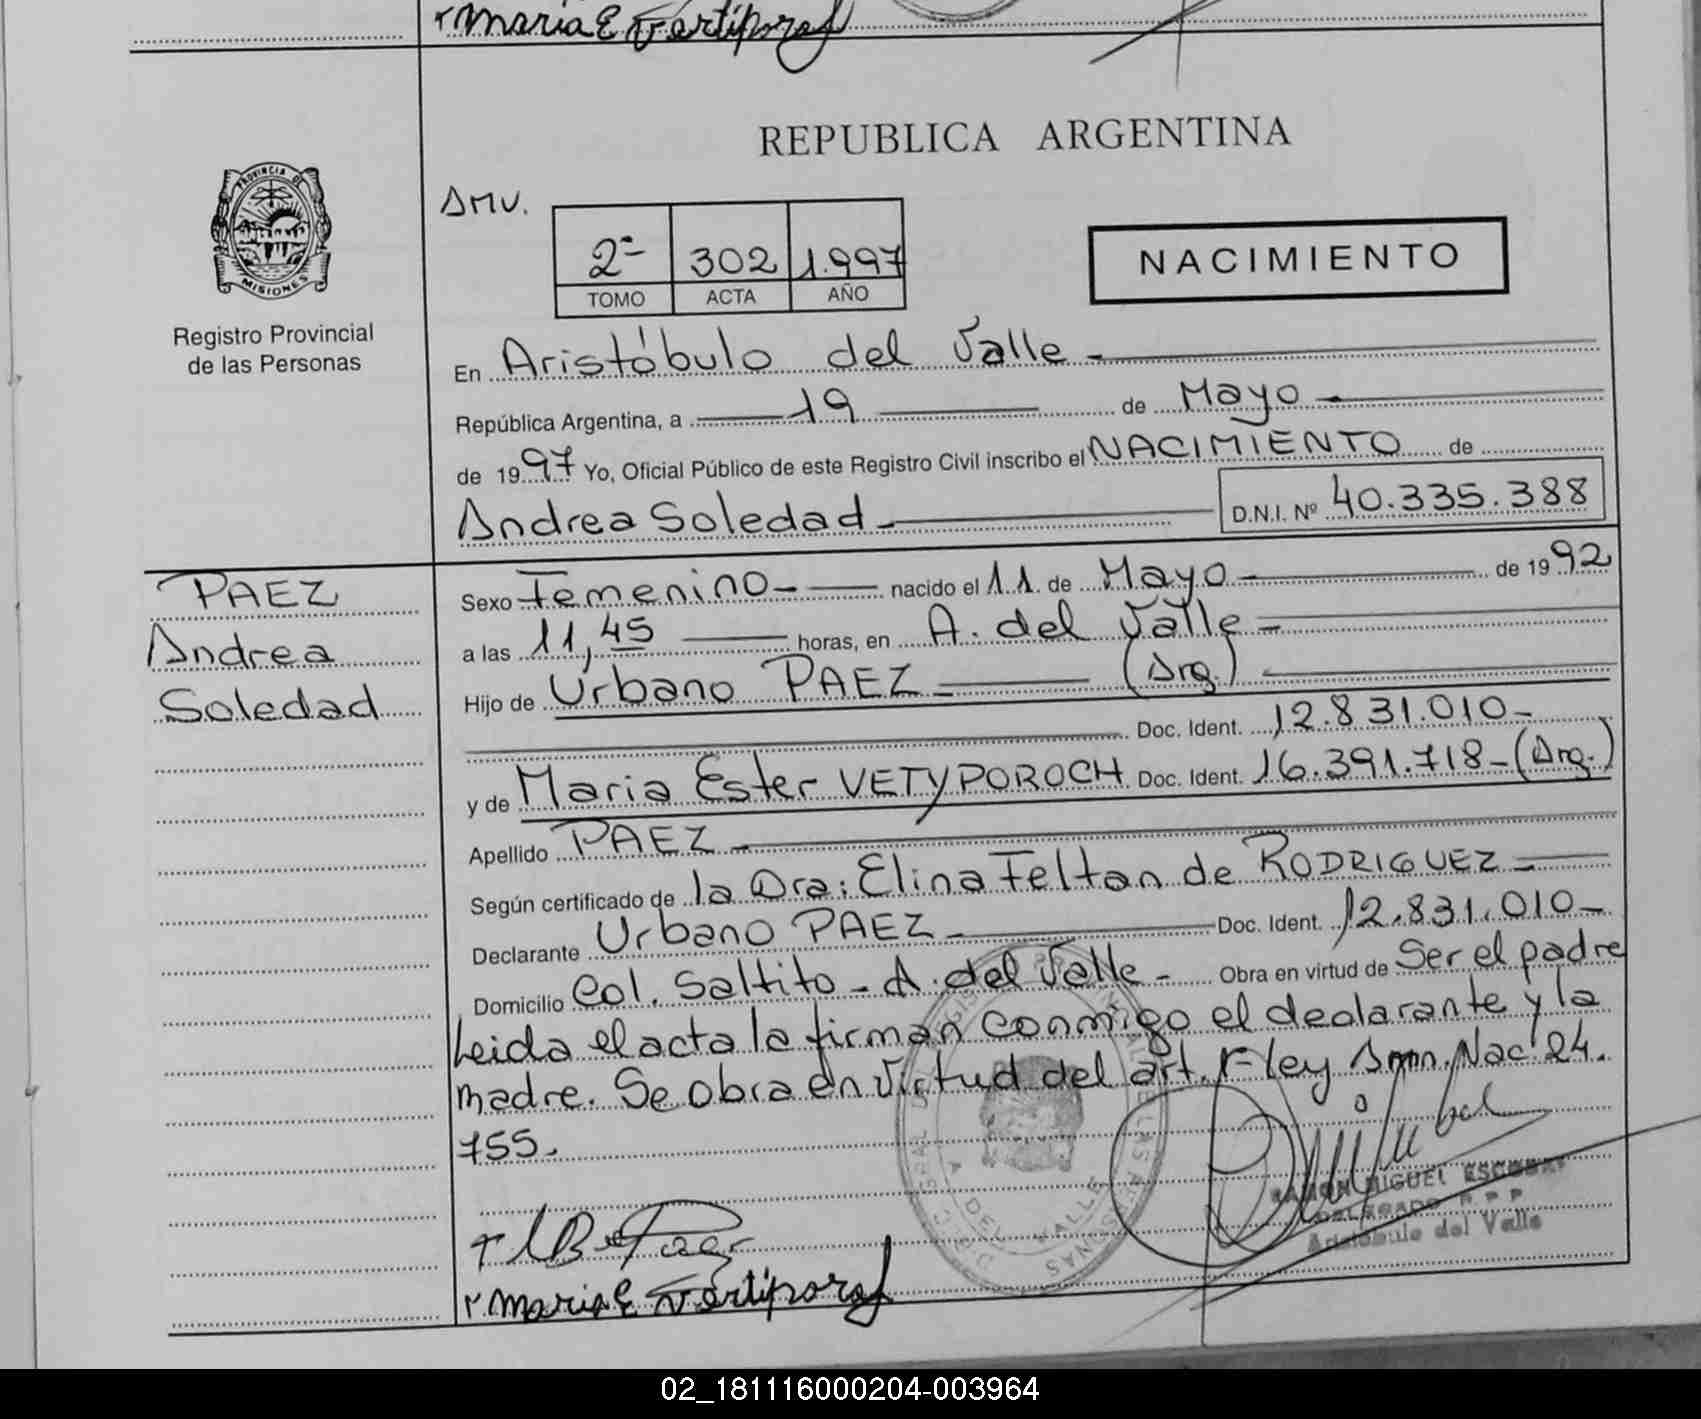 Maria E
REPUBLICA ARGENTINA
PROVINCIA DE
MISIONES
Registro Provincial
de las Personas
AMV.
2ª 302 1.997
TOMO ACTA AÑO
NACIMIENTO
En Aristóbulo del Valle -
República Argentina, a 19 de Mayo -
de 1997 Yo, Oficial Público de este Registro Civil inscribo el NACIMIENTO de
Andrea Soledad - D.N.I. Nº 40.335.388
PAEZ
Andrea
Soledad
Sexo Femenino - nacido el 11 de Mayo - de 1992
a las 11,45 horas, en A. del Valle -
Hijo de Urbano PAEZ - (Arg.)
Doc. Ident. 12.831.010-
y de Maria Ester VETYPOROCH Doc. Ident. 16.391.718-(Arg.)
Apellido PAEZ -
Según certificado de la Dra: Elina Feltan de RODRIGUEZ -
Declarante Urbano PAEZ - Doc. Ident. 12.831.010-
Domicilio Col. Saltito - A. del Valle - Obra en virtud de Ser el padre
Leida el acta la firman conmigo el declarante y la
madre. Se obra en virtud del art. 1º ley Amn. Nac 24.
755.
A. DEL VALLE
RAMON MIGUEL ESCOBAR
DELEGADO R.P.P.
Aristóbulo del Valle
Paez
Maria E
02_181116000204-003964